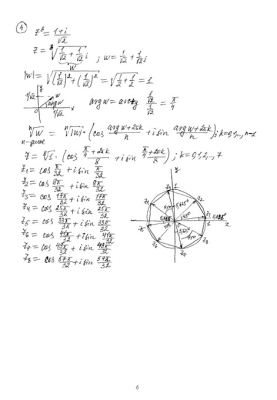 4
z⁸ = (1+i)/√2
z = ⁸√(1/√2 + 1/√2 i) ; w = 1/√2 + 1/√2 i
w
|w| = √((1/√2)² + (1/√2)²) = √(1/2 + 1/2) = 1
1/√2 w arg w 1/√2
arg w = arctg (1/√2)/(1/√2) = π/4
ⁿ√w = ⁿ√|w| · (cos (arg w + 2πk)/n + i sin (arg w + 2πk)/n) ; k = 0,1,.., n-1
z = ⁸√1 · (cos (π/4 + 2πk)/8 + i sin (π/4 + 2πk)/8) ; k = 0,1,.., 7
z₁ = cos π/32 + i sin π/32
z₂ = cos 9π/32 + i sin 9π/32
z₃ = cos 17π/32 + i sin 17π/32
z₄ = cos 25π/32 + i sin 25π/32
z₅ = cos 33π/32 + i sin 33π/32
z₆ = cos 41π/32 + i sin 41π/32
z₇ = cos 49π/32 + i sin 49π/32
z₈ = cos 57π/32 + i sin 57π/32
6